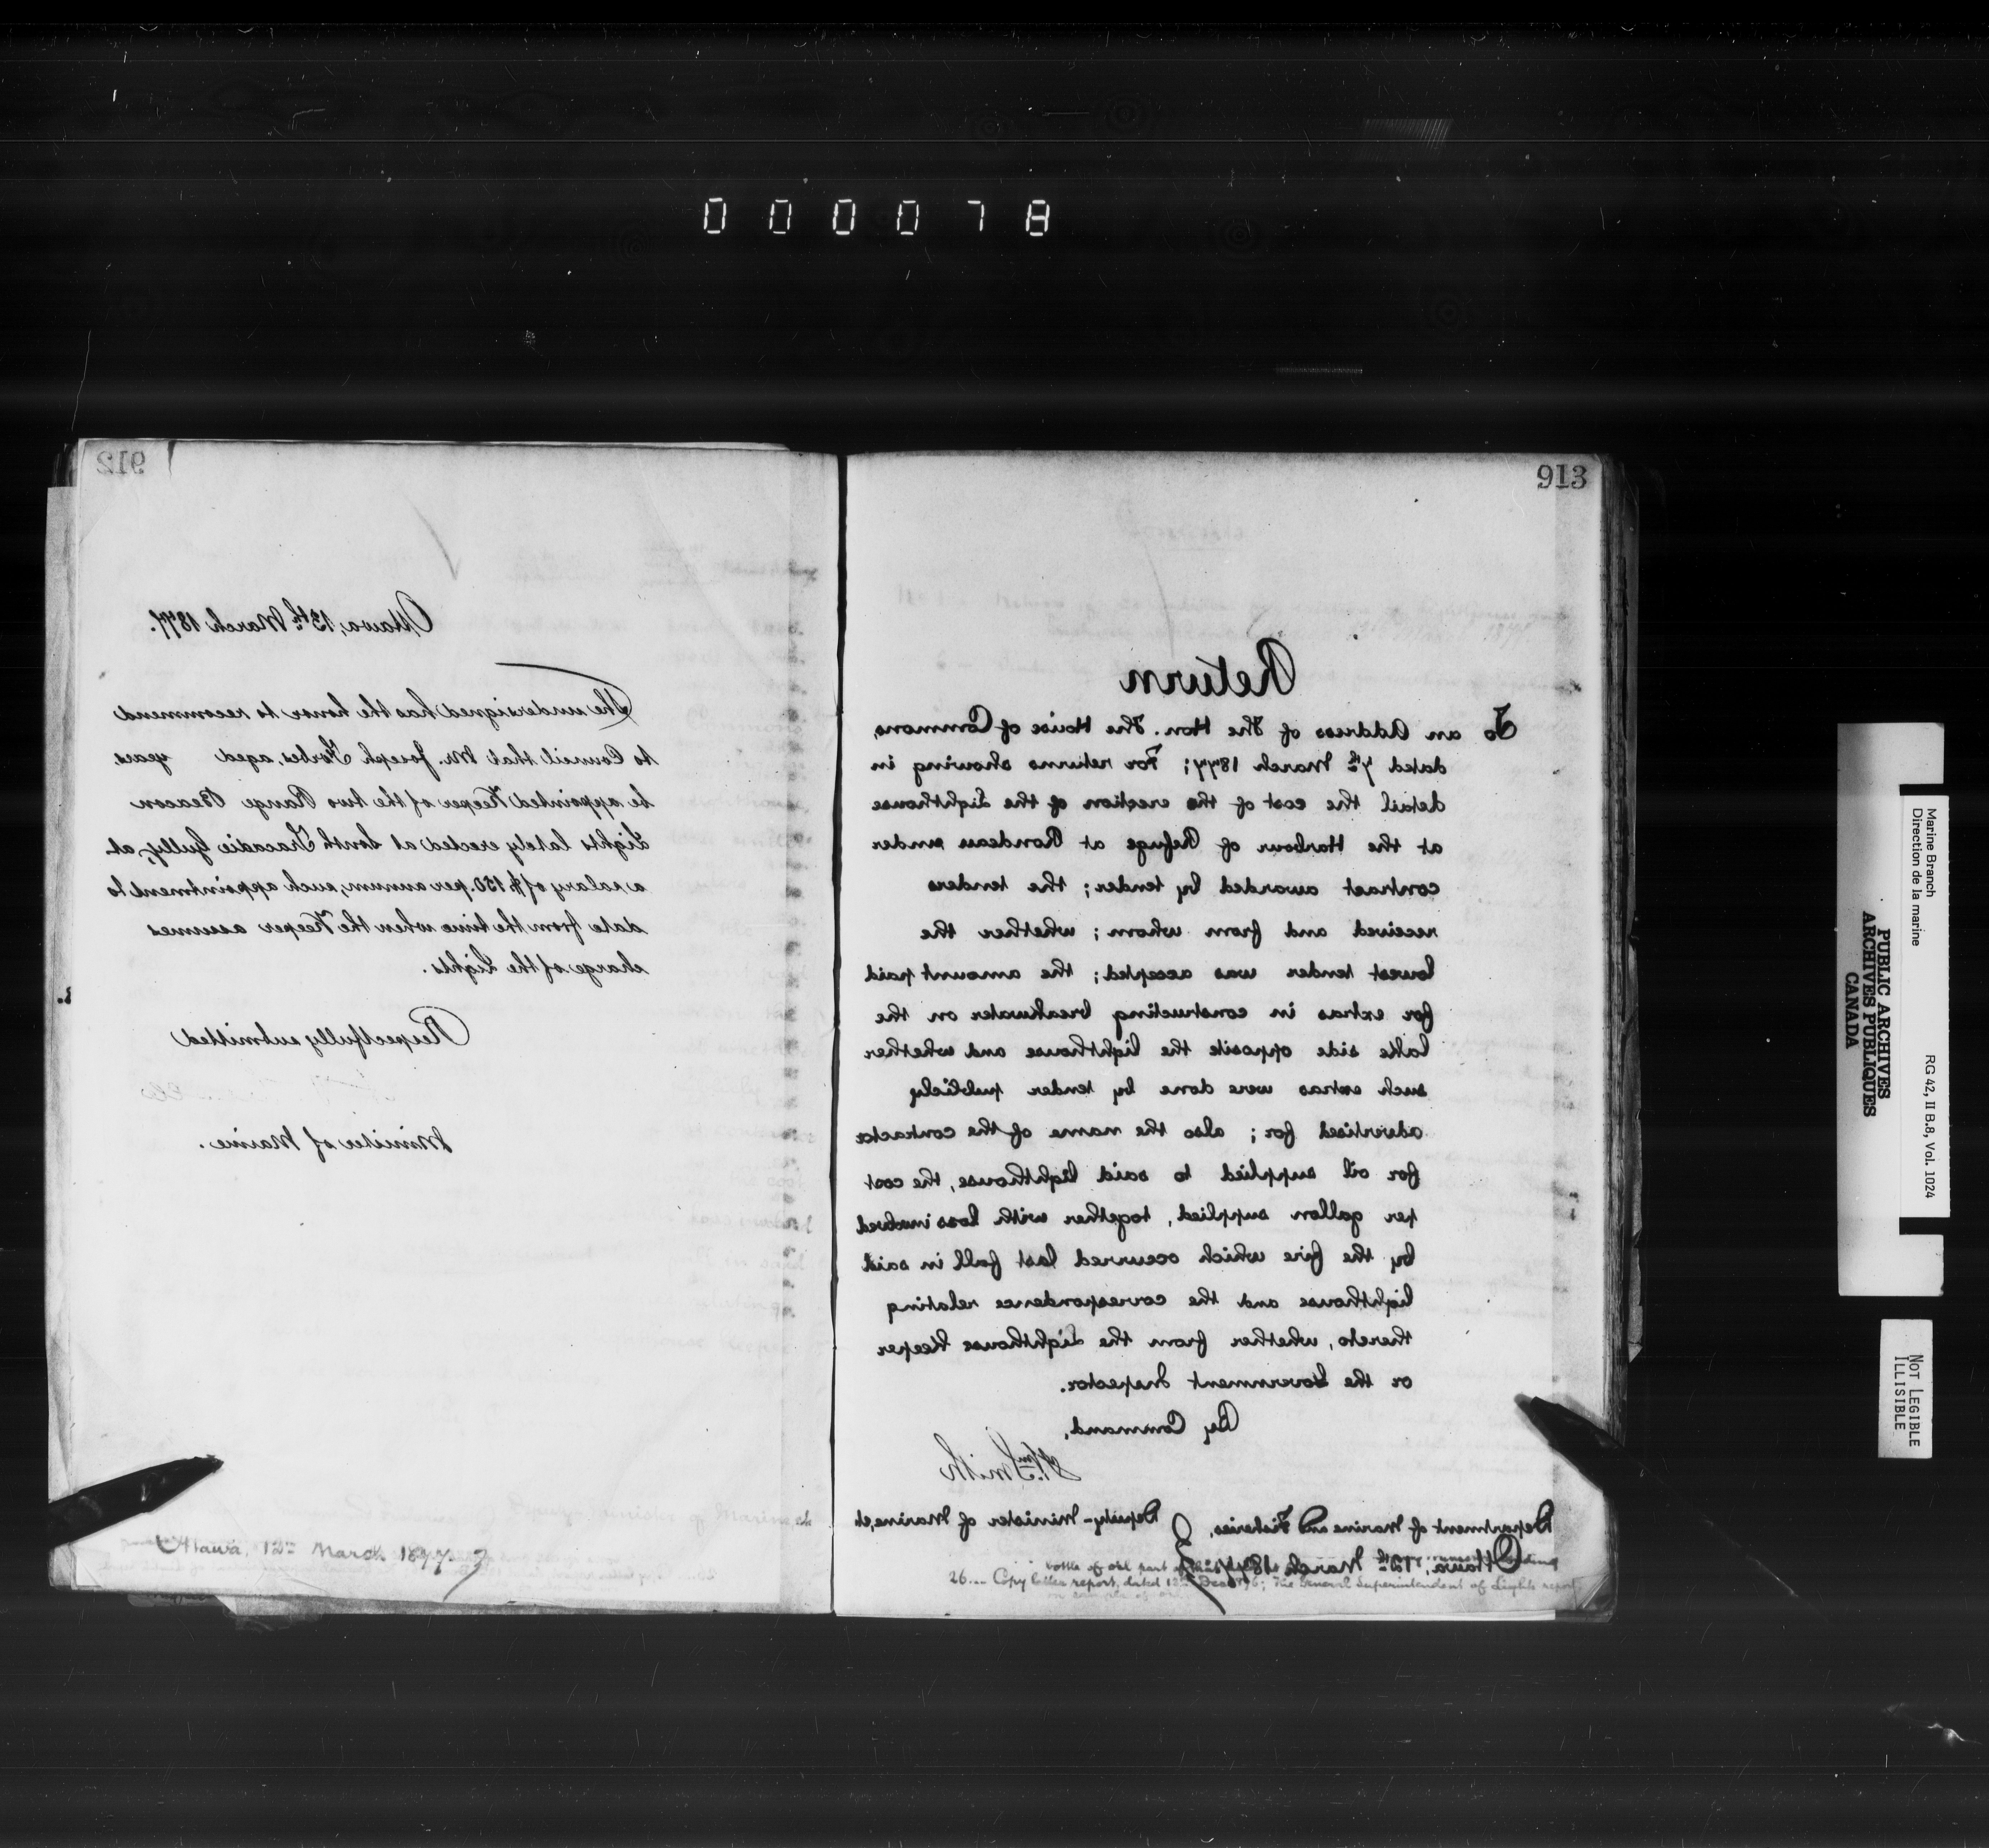 0 0 0 0 7 8
912
Ottawa, 13th March 1877.
The undersigned has the honor to recommend
to Council that Mr. Joseph Forbes, aged years
be appointed Keeper of the two Range Beacon
Lights lately erected at South Tracadie Gully, at
a salary of $150. per annum, such appointment to
date from the time when the Keeper assumes
charge of the Lights.
Respectfully submitted
Minister of Marine.
Ottawa, 12th March 1877.
913
Return
To an Address of The Hon. The House of Commons,
dated 7th March 1877; For returns showing in
detail the cost of the erection of the Lighthouse
at the Harbour of Refuge at Rondeau under
contract awarded by tender; the tenders
received and from whom; whether the
lowest tender was accepted; the amount paid
for extras in constructing breakwater on the
lake side opposite the lighthouse and whether
such extras were done by tender publicly
advertised for; also the name of the contractor
for oil supplied to said lighthouse, the cost
per gallon supplied, together with loss involved
by the fire which occurred last fall in said
lighthouse and the correspondence relating
thereto, whether from the Lighthouse Keeper
or the Government Inspector.
By Command,
Wm Smith
Deputy-Minister of Marine, &c
Department of Marine and Fisheries,
Ottawa, 12th March 1877.
26 Copy letter report, dated 12th Dec 1876; The General Superintendent of Lights report
Marine Branch
Direction de la marine
RG 42, II B.8, Vol. 1024
PUBLIC ARCHIVES
ARCHIVES PUBLIQUES
CANADA
NOT LEGIBLE
ILLISIBLE